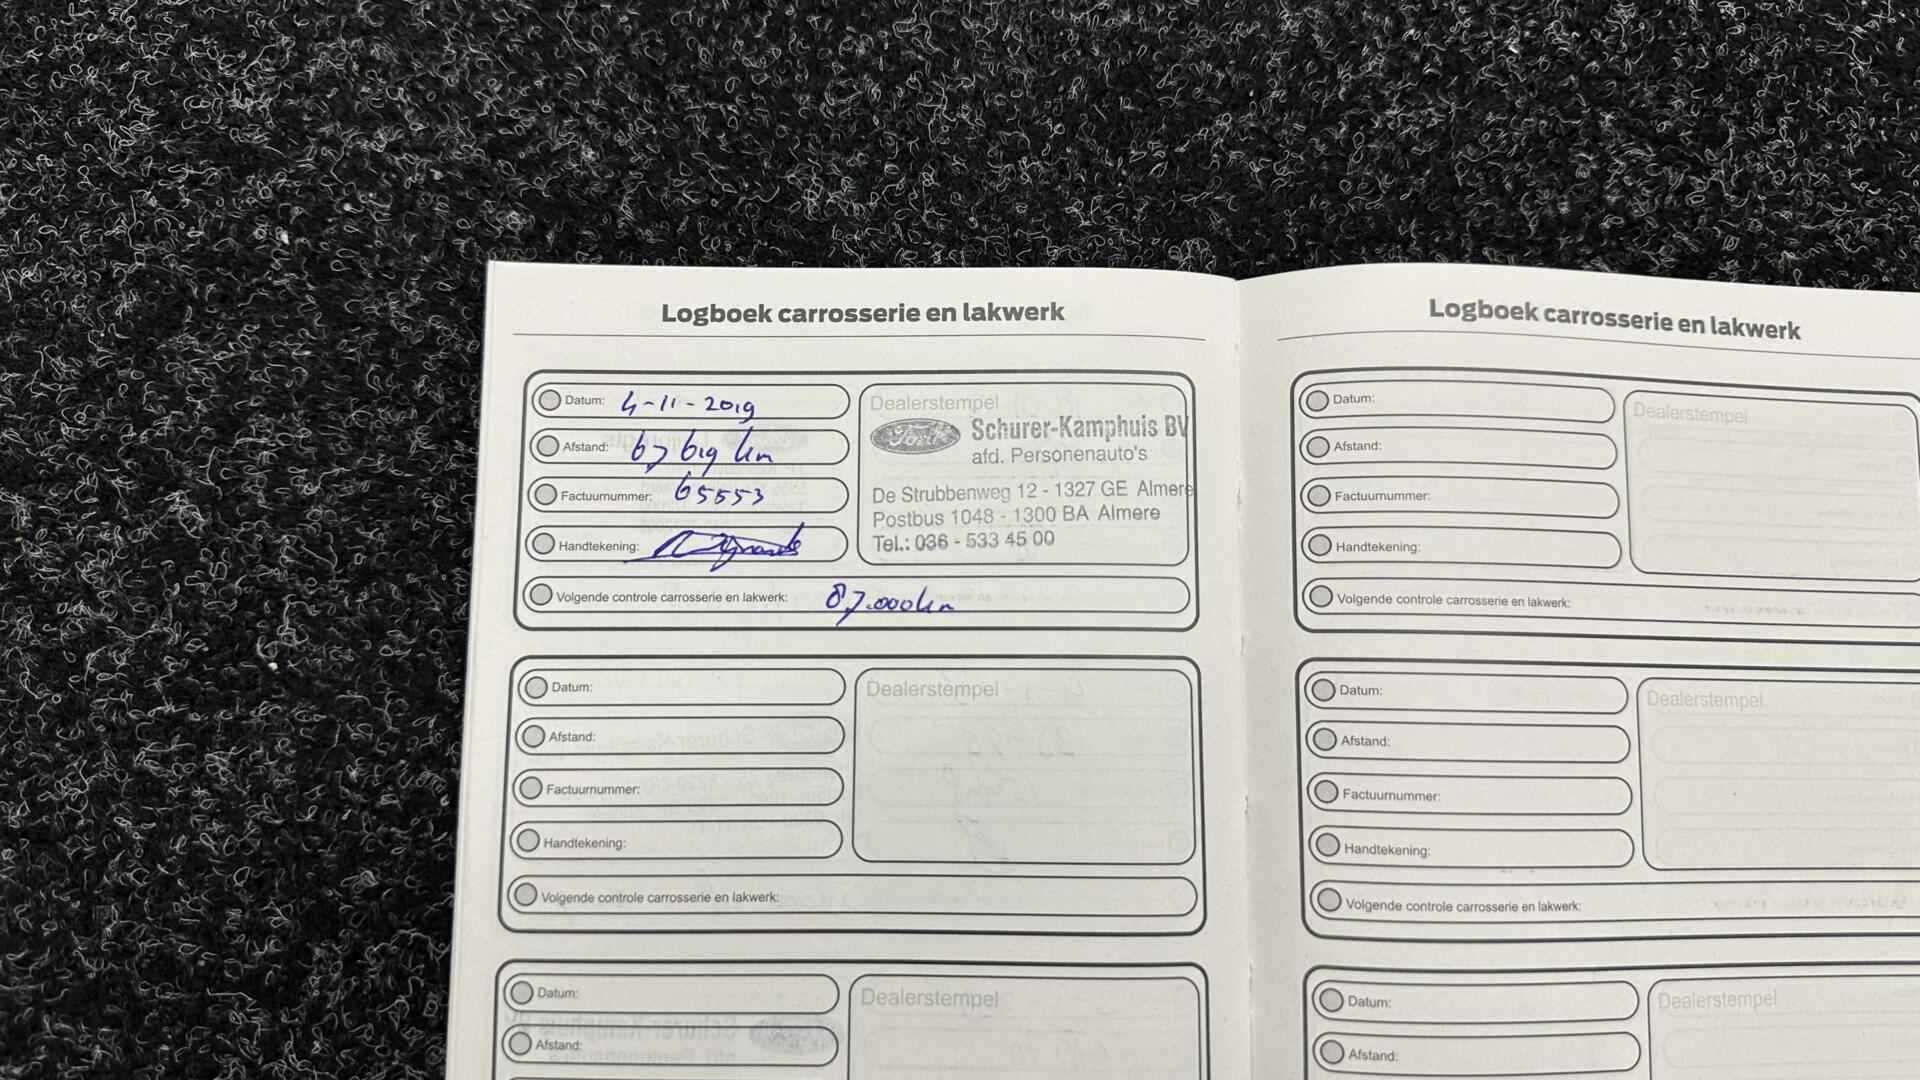 Logboek carrosserie en lakwerk
Datum: 4-11-2019
Afstand: 67 619 km
Factuurnummer: 65553
Handtekening:
Volgende controle carrosserie en lakwerk: 87.000km
Dealerstempel
Ford
Schurer-Kamphuis BV
afd. Personenauto's
De Strubbenweg 12 - 1327 GE Almere
Postbus 1048 - 1300 BA Almere
Tel.: 036 - 533 45 00
Datum:
Afstand:
Factuurnummer:
Handtekening:
Volgende controle carrosserie en lakwerk:
Dealerstempel
Datum:
Afstand:
Dealerstempel
Logboek carrosserie en lakwerk
Datum:
Afstand:
Factuurnummer:
Handtekening:
Volgende controle carrosserie en lakwerk:
Dealerstempel
Datum:
Afstand:
Factuurnummer:
Handtekening:
Volgende controle carrosserie en lakwerk:
Dealerstempel
Datum:
Afstand:
Dealerstempel